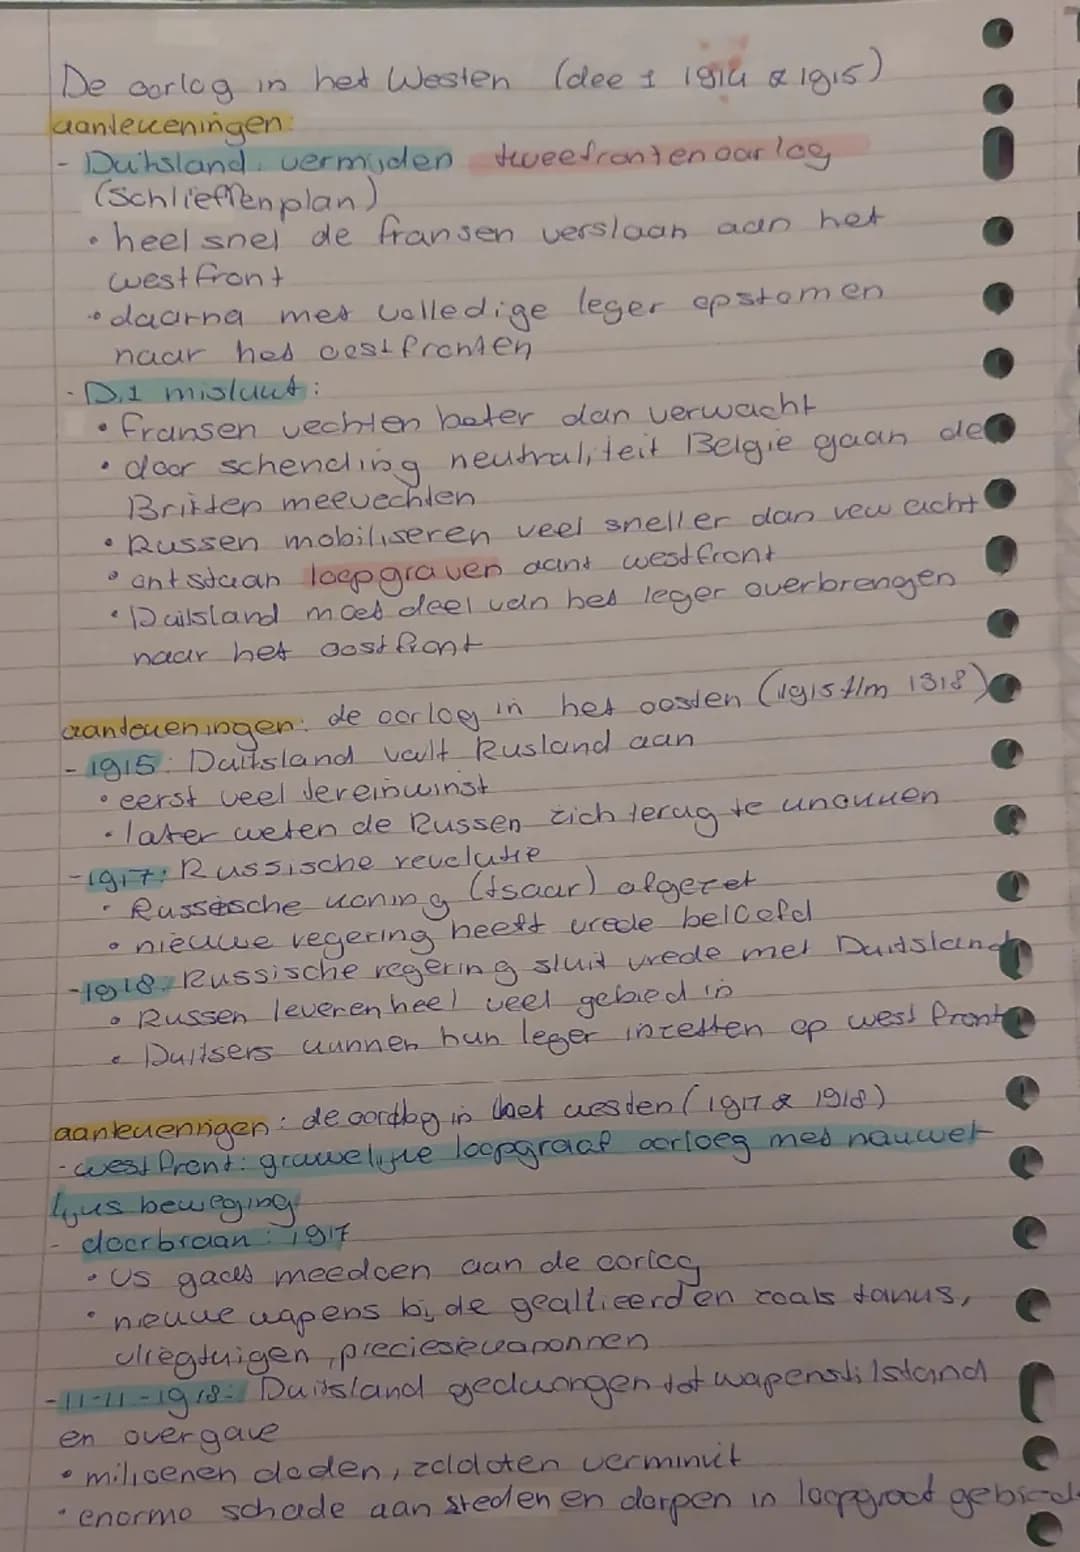 De oorlog in het Westen (dee 1 1914 & 1915)
aantekeningen:
- Duitsland: vermijden tweefrontenoorlog
(Schlieffenplan)
• heel snel de fransen verslaan aan het
westfront
• daarna met volledige leger opstomen
naar het oostfronten
- D.1 mislukt:
• fransen vechten beter dan verwacht
• door schending neutraliteit Belgie gaan de
Britten meevechten
• Russen mobiliseren veel sneller dan verwacht
• ontstaan loopgraven aant westfront
• Duitsland moet deel van het leger overbrengen
naar het oostfront
aantekeningen: de oorlog in het oosten (1915 t/m 1918)
- 1915: Duitsland valt Rusland aan
• eerst veel tereinwinst
• later weten de Russen zich terug te knokken
- 1917: Russische revolutie
• Russische koning (tsaar) afgezet
• nieuwe regering heeft vrede beloofd
- 1918: Russische regering sluit vrede met Duitsland
• Russen leveren heel veel gebied in
• Duitsers kunnen hun leger inzetten op west front
aantekeningen: de oorlog in het westen (1917 & 1918)
- west front: gruwelijke loopgraaf oorloeg met nauwe
lijks beweging
- doorbraak: 1917
• US gaat meedoen aan de oorlog
• nieuwe wapens bij de geallieerden zoals tanks,
vliegtuigen, preciesiekanonnen
- 11-11-1918: Duitsland gedwongen tot wapenstilstand
en overgave
• milioenen doden, zoldaten verminkt
• enorme schade aan steden en dorpen in loopgraaf gebied